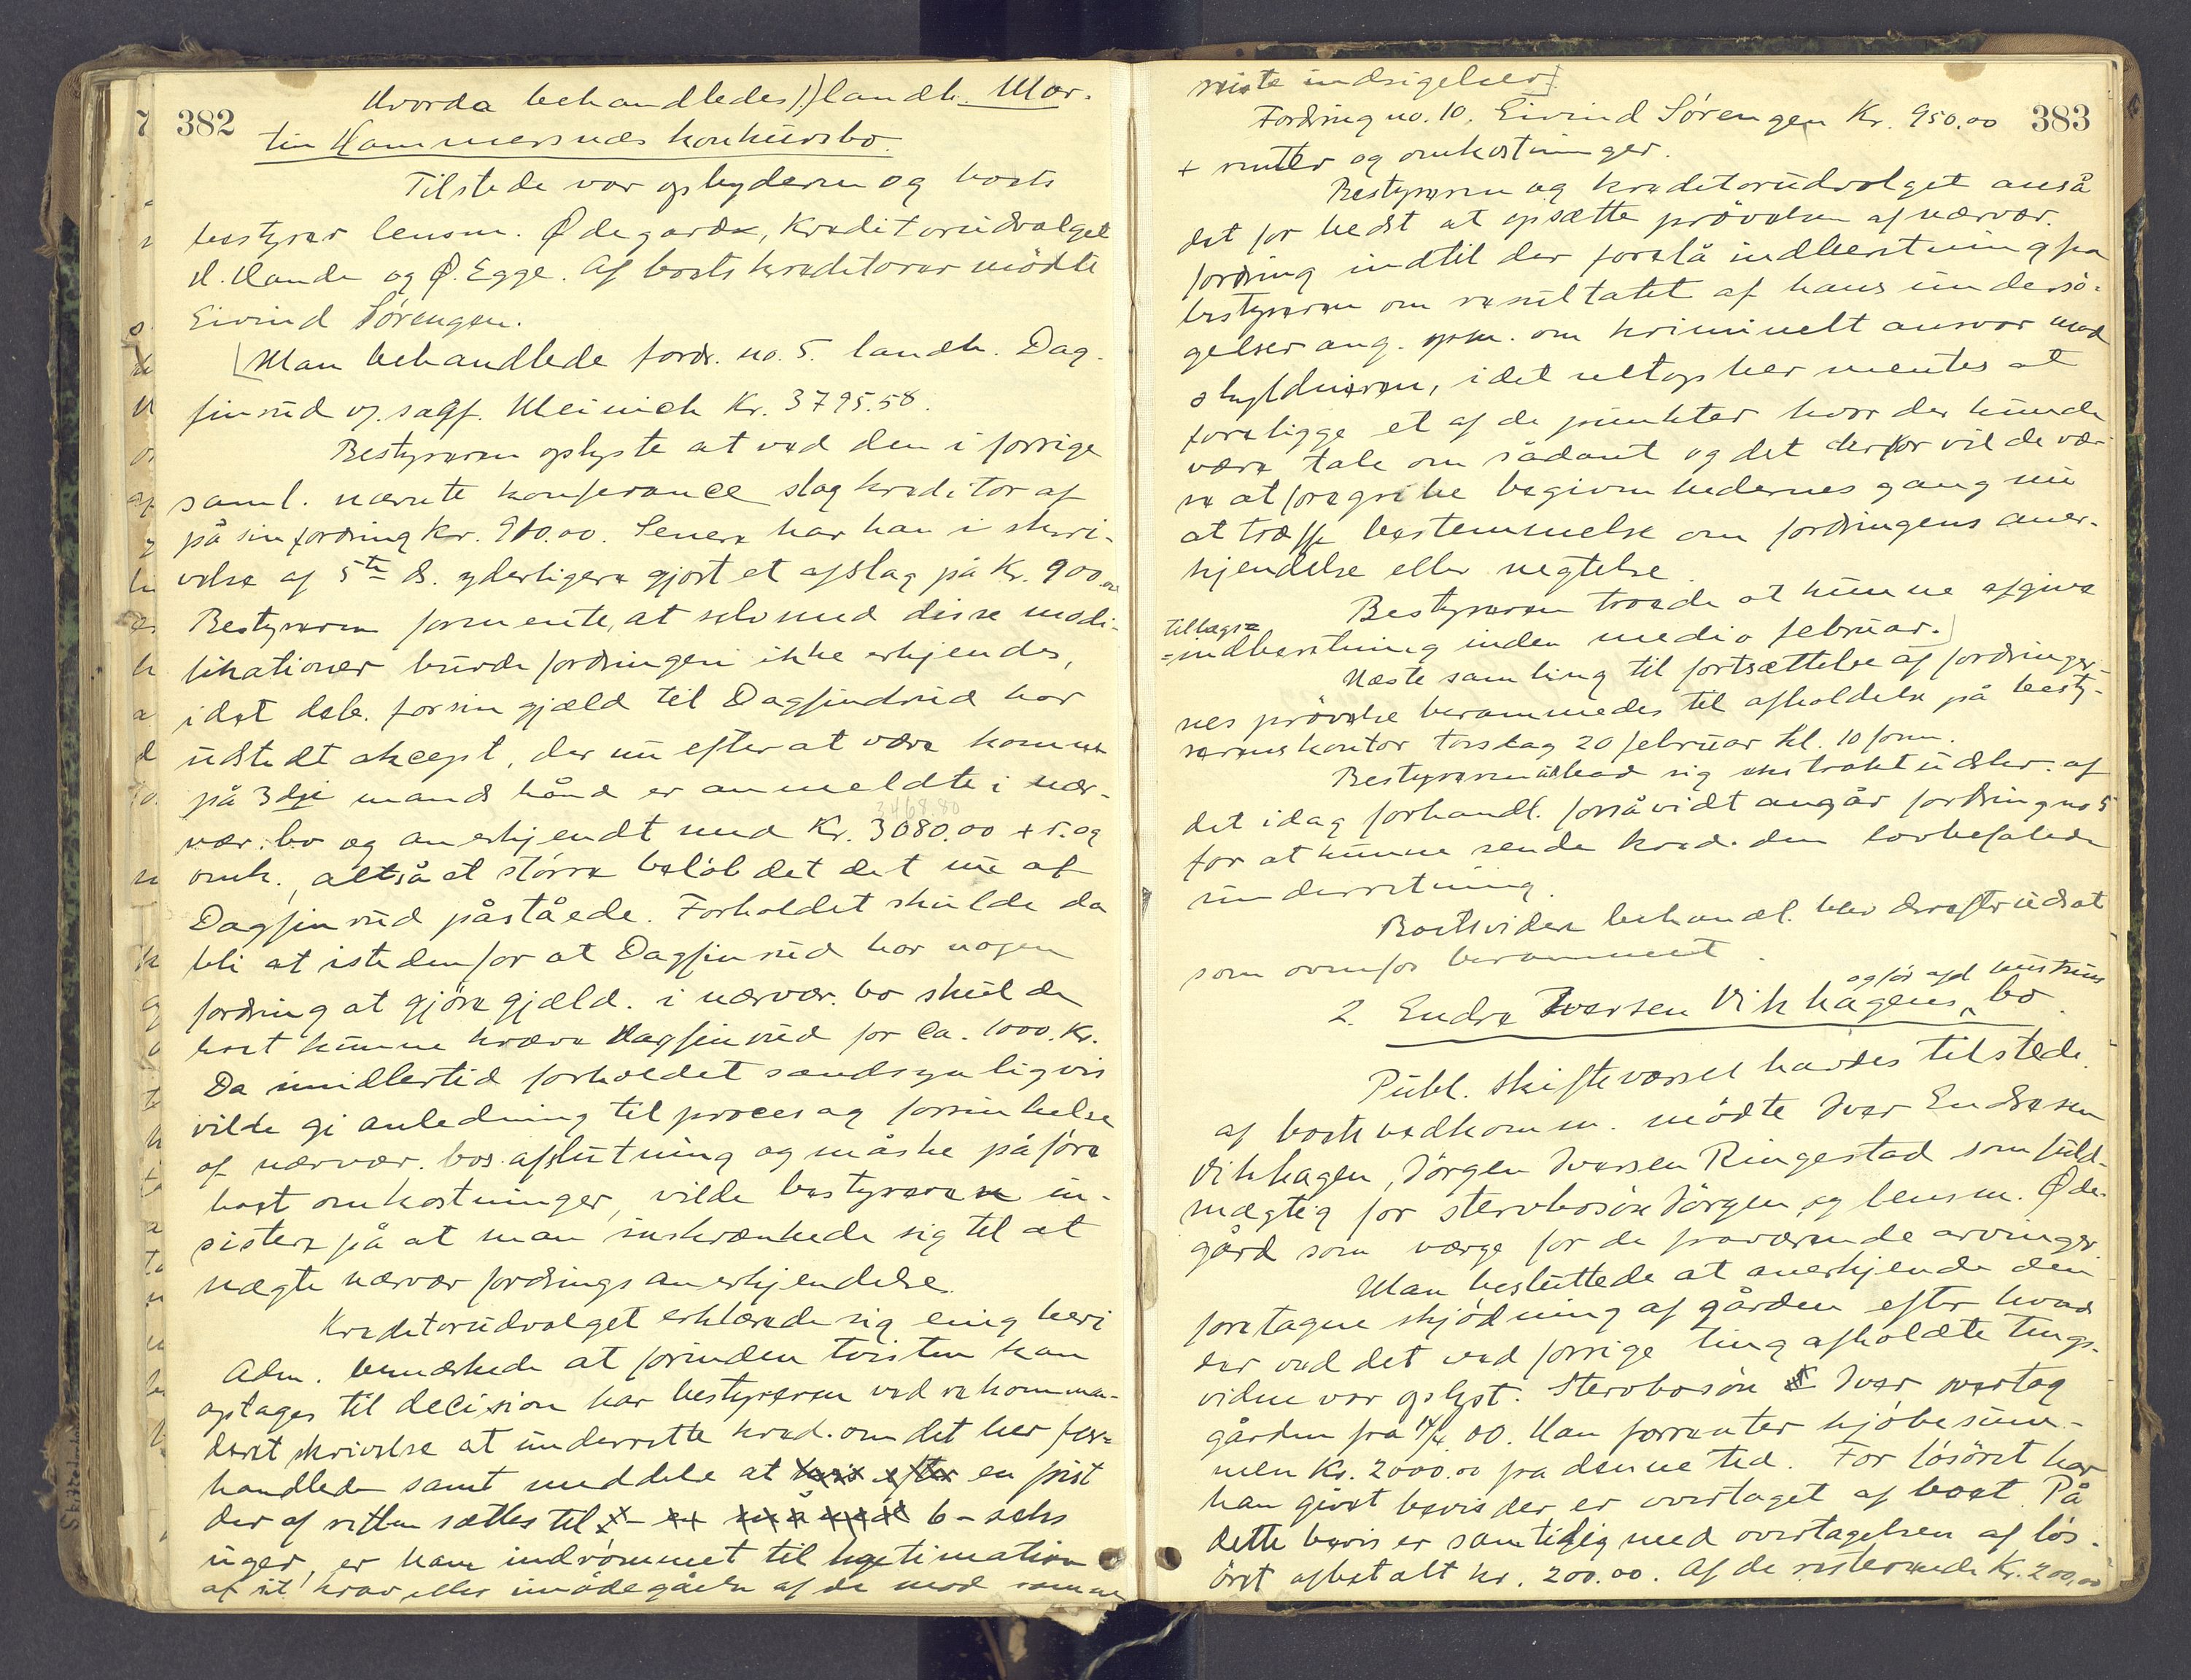 382
Hvorda behandledes 1) landh. Mar-
tin Hammersnæs konkursbo.
Tilstede var opbyderen og boets
bestyrer lensm. Ødegaard, Kreditorudvalget
H. Hande og Ø. Egge. Af boets kreditorer mødte
Eivind Sørengen.
Man behandlede fordr. no. 5. landh. Dag-
finrud v. sagf. Meinich Kr. 3795.58.
Bestyreren oplyste at ved den i forrige
saml. nævnte konferance slog kreditor af
på sin fordring Kr. 910.00. Senere har han i skri-
velse af 5te ds. yderligere gjort et afslag på Kr. 900.00
Bestyreren formente, at selv med disse modi-
fikationer burde fordringen ikke erkjendes,
idet deb. for sin gjæld til Dagfindrud har
udstedt akcept, der nu efter at være kommen
på 3dje mands hånd er anmeldte i nær-
3468.80
vær. bo og anerkjendt med Kr. 3080.00 + r. og
omk., altså et større beløb det det nu af
Dagfinrud påståede. Forholdet skulde da
bli at istedenfor at Dagfinrud har nogen
fordring at gjøre gjæld. i nærvær. bo skulde
boet kunne kræve Dagfinrud for ca. 1000. Kr.
Da imidlertid forholdet sandsynligvis
vilde gi anledning til proces og forsinkelse
af nærvær. bos afslutning og måske påføre
boet omkostninger, vilde bestyreren in-
sistere på at man inskrænkede sig til at
nægte nærvær fordrings anerkjendelse.
Kreditorudvalget erklærede sig enig heri
Adm. bemærkede at forinden tvisten kan
optages til decision har bestyreren ved rekomman-
deret skrivelse at underrette kred. om det her for-
handlede samt meddele at en frist
der af retten sættes til 6 - seks
uger, er ham indrømmet til legetimation
af sit krav eller imødegåelse af de mod samme
383
reiste indsigelser.
Fordring no. 10. Eivind Sørengen Kr. 950.00
+ renter og omkostninger.
Bestyreren og kreditorudvalget anså
det for bedst at opsætte prøvelsen af nærvær.
fordring indtil der forelå indberetning fra
bestyreren om resultatet af hans undersø-
gelser ang. spm. om kriminelt ansvar mod
skyldneren, idet netop her mentes at
foreligge et af de punkter hvor der kunde
være tale om sådant og det derfor vilde væ-
re at foregribe begivenhedernes gang nu
at træffe bestemmelse om fordringens aner-
kjendelse eller negtelse.
Bestyreren troede at kunne afgive
tilbage=
=indberetning inden medio februar.
Næste samling til fortsættelse af fordringer-
nes prøvelse berammedes til afholdelse på besty-
rerens kontor torsdag 20 februar kl. 10 form.
Bestyreren udbad sig ekstraktudskr. af
det idag forhandl. forsåvidt angår fordring no 5
for at kunne sende kred. den lovbefalede
underretning.
Boets videre behandl. blev derefter udsat
som ovenfor berammet.
og før afd hustrus
2. Endre Iversen Vikhagens bo.
Publ. skiftevarsel havdes tilstede.
af boets vedkomm. mødte Iver Endresen
Vikhagen, Jörgen Iversen Ringestad som fuld-
mægtig for stervbosøn Jörgen, og lensm. Øde-
gård som værge for de fraværende arvinger.
Man besluttede at anerkjende den
foretagne skjødning af gården efter hvad
der ved det ved forrige ting afholdte tings-
vidne var oplyst. Stervbosøn Iver overtog
gården fra 14/4 00. Han forrenter kjøbesum-
men Kr. 2000.00 fra denne tid. For løsøret har
han givet bevis der er overtaget af boet. På
dette bevis er samtidig med overtagelsen af løs-
øret afbetalt kr. 200.00. Af de resterende Kr. 200,00